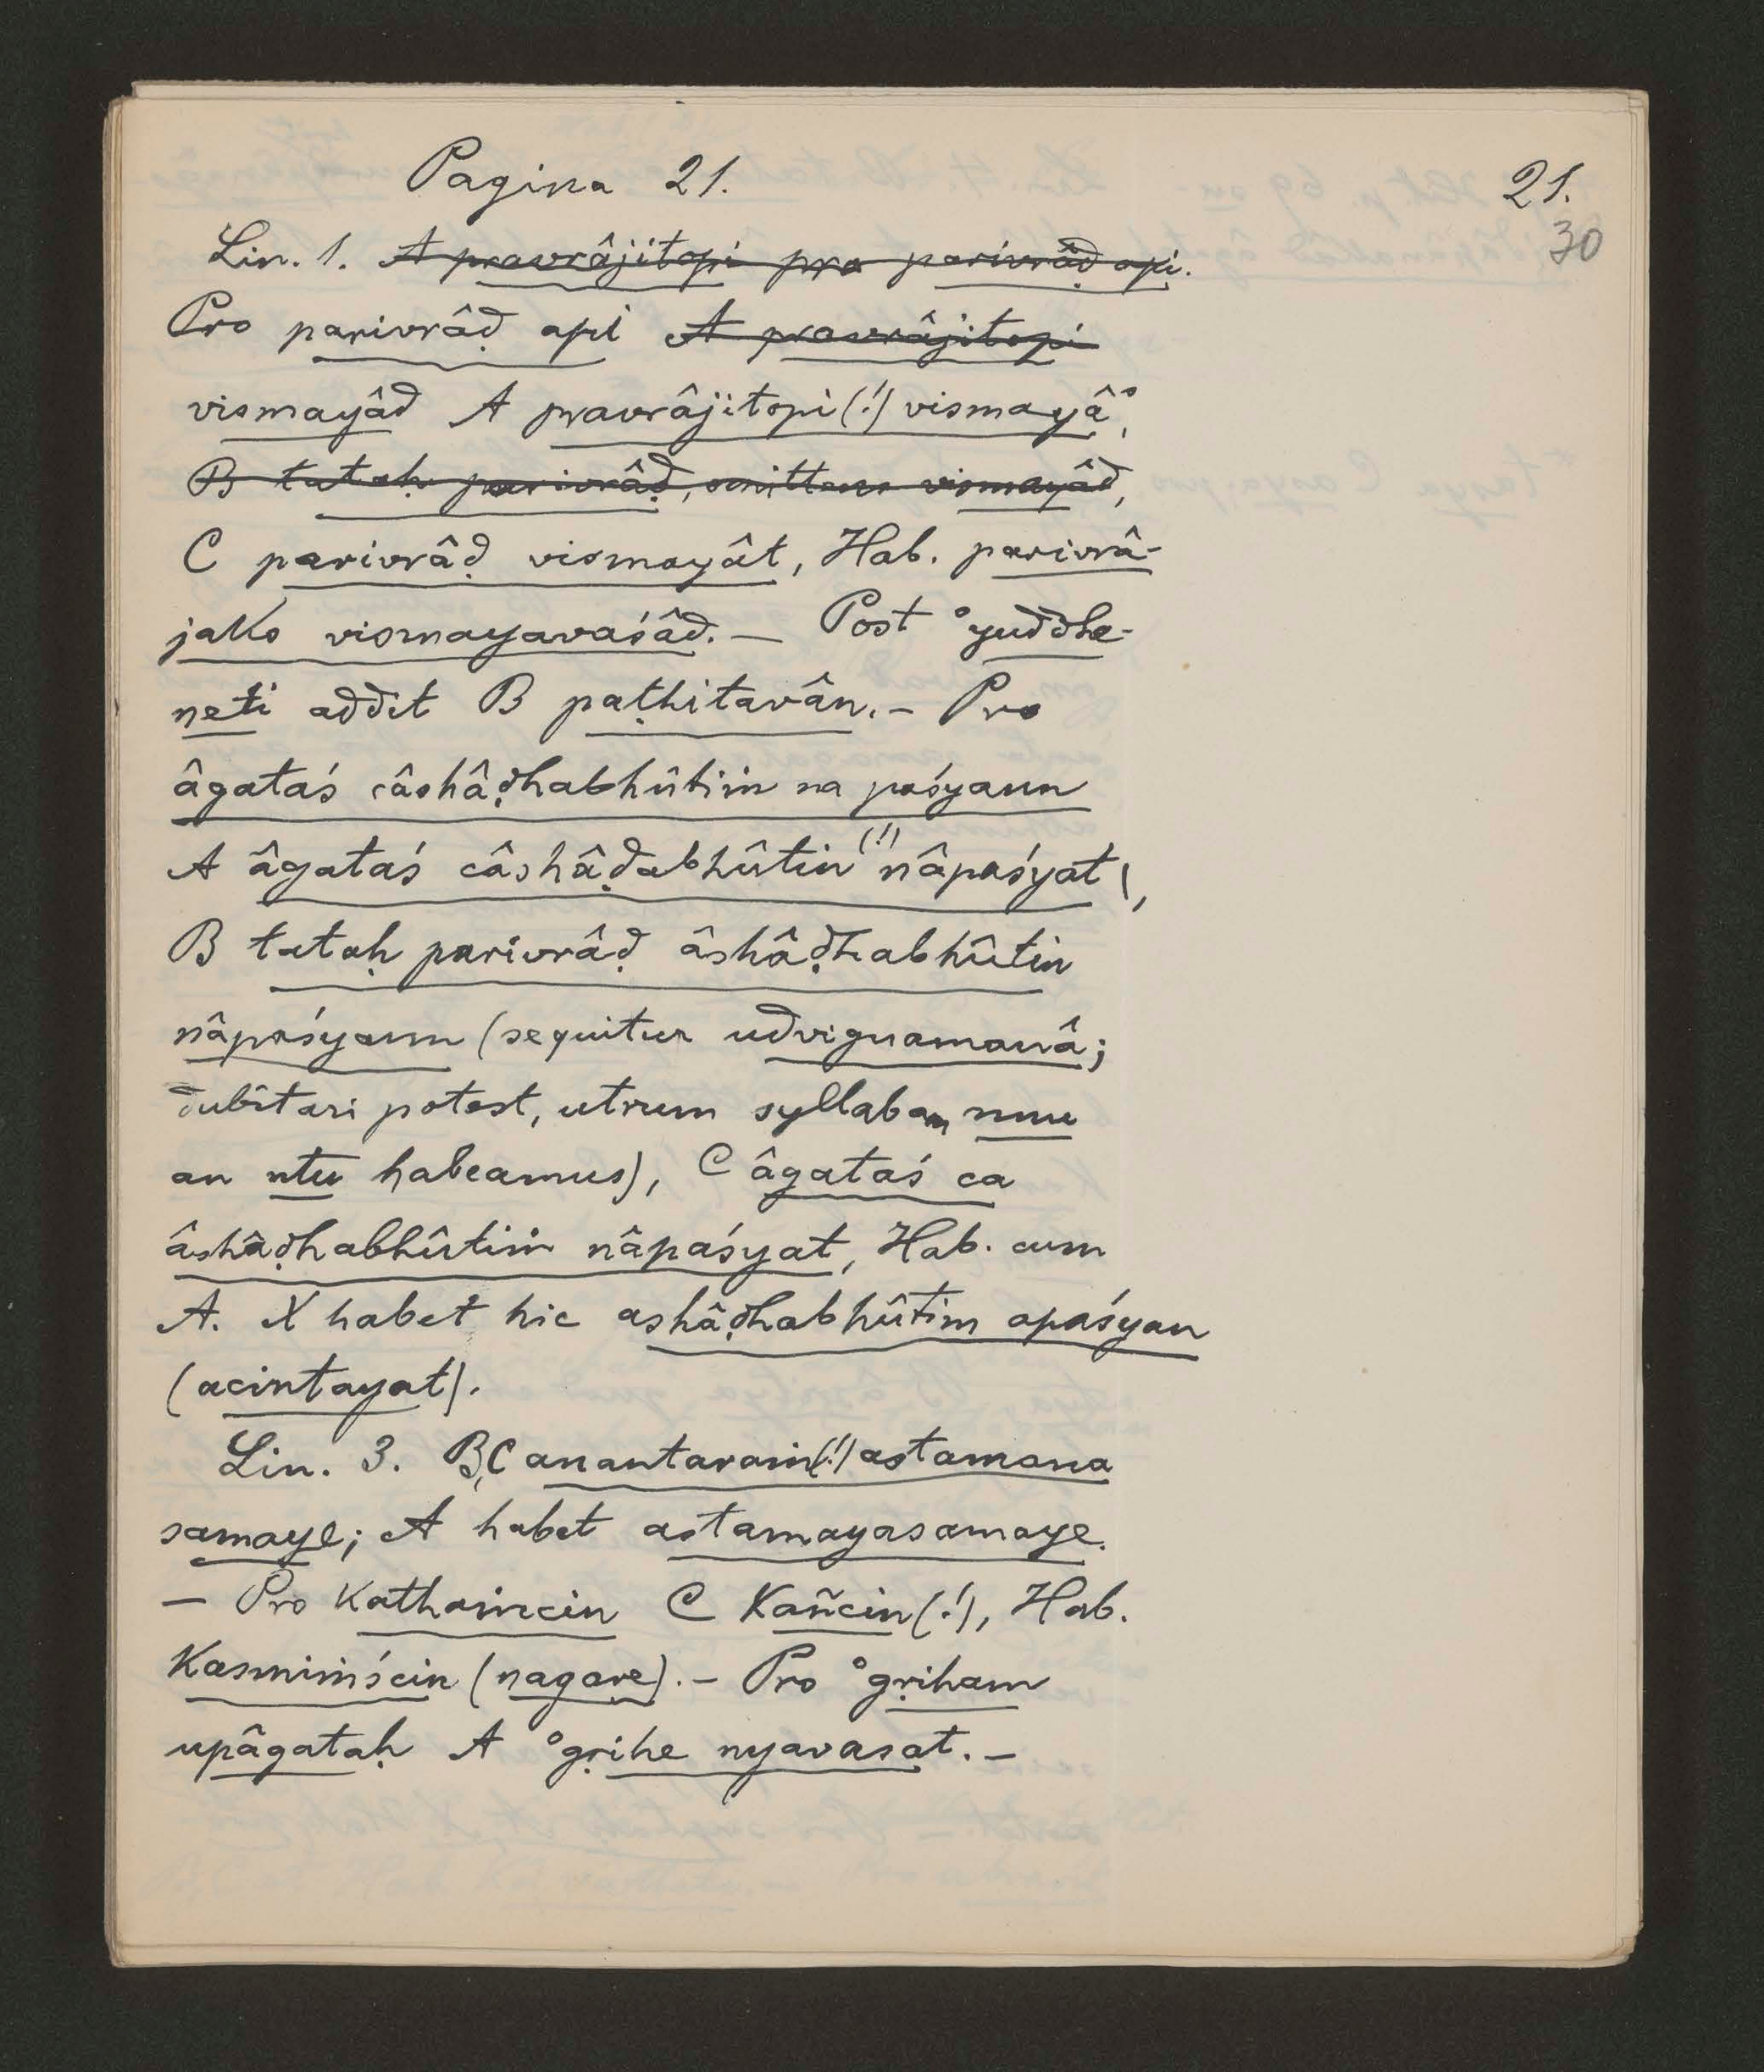 Pagina 21.
21.
30
Lin. 1. A pravrâjitopi pro parivrâḍ api.
Pro parivrâḍ api A pravrâjitopi
vismayâd A pravrâjitopi (!) vismayâ°,
B tataḥ parivrâḍ, omittens vismayâd,
C parivrâḍ vismayât, Hab. parivrâ-
jako vismayavaśâd. — Post °yuddhe-
neti addit B paṭhitavân. — Pro
âgataś câshâḍhabhûtiṁ na paśyann
A âgataś câshâḍabhûtin (!) nâpaśyat,
B tataḥ parivrâḍ âshâḍhabhûtin
nâpaśyann (sequitur udvignamanâ;
dubitari potest, utrum syllabam nnu
an ntu habeamus), C âgataś ca
âshâḍhabhûtiṁ nâpaśyat, Hab. cum
A. X habet hic ashâḍhabhûtim apaśyan
(acintayat).
Lin. 3. B,C anantaraṁ (!) astamana
samaye; A habet astamayasamaye.
— Pro kathaṁcin C kañcin (!), Hab.
kasmiṁścin (nagare). — Pro °gṛiham
upâgataḥ A °gṛihe nyavasat. —